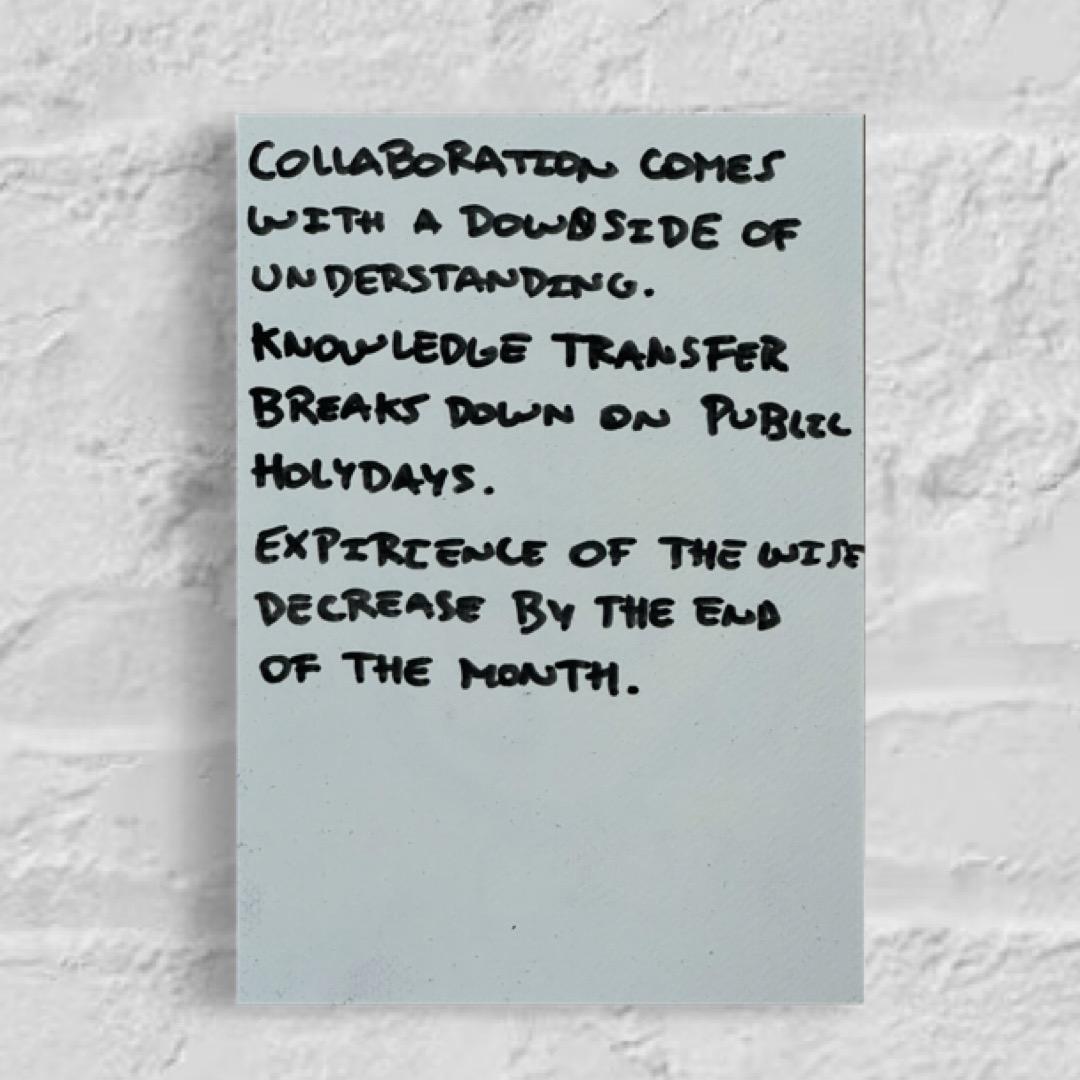 COLLABORATION COMES
WITH A DOWNSIDE OF
UNDERSTANDING.
KNOWLEDGE TRANSFER
BREAKS DOWN ON PUBLIC
HOLYDAYS.
EXPIRIENCE OF THE WISE
DECREASE BY THE END
OF THE MONTH.